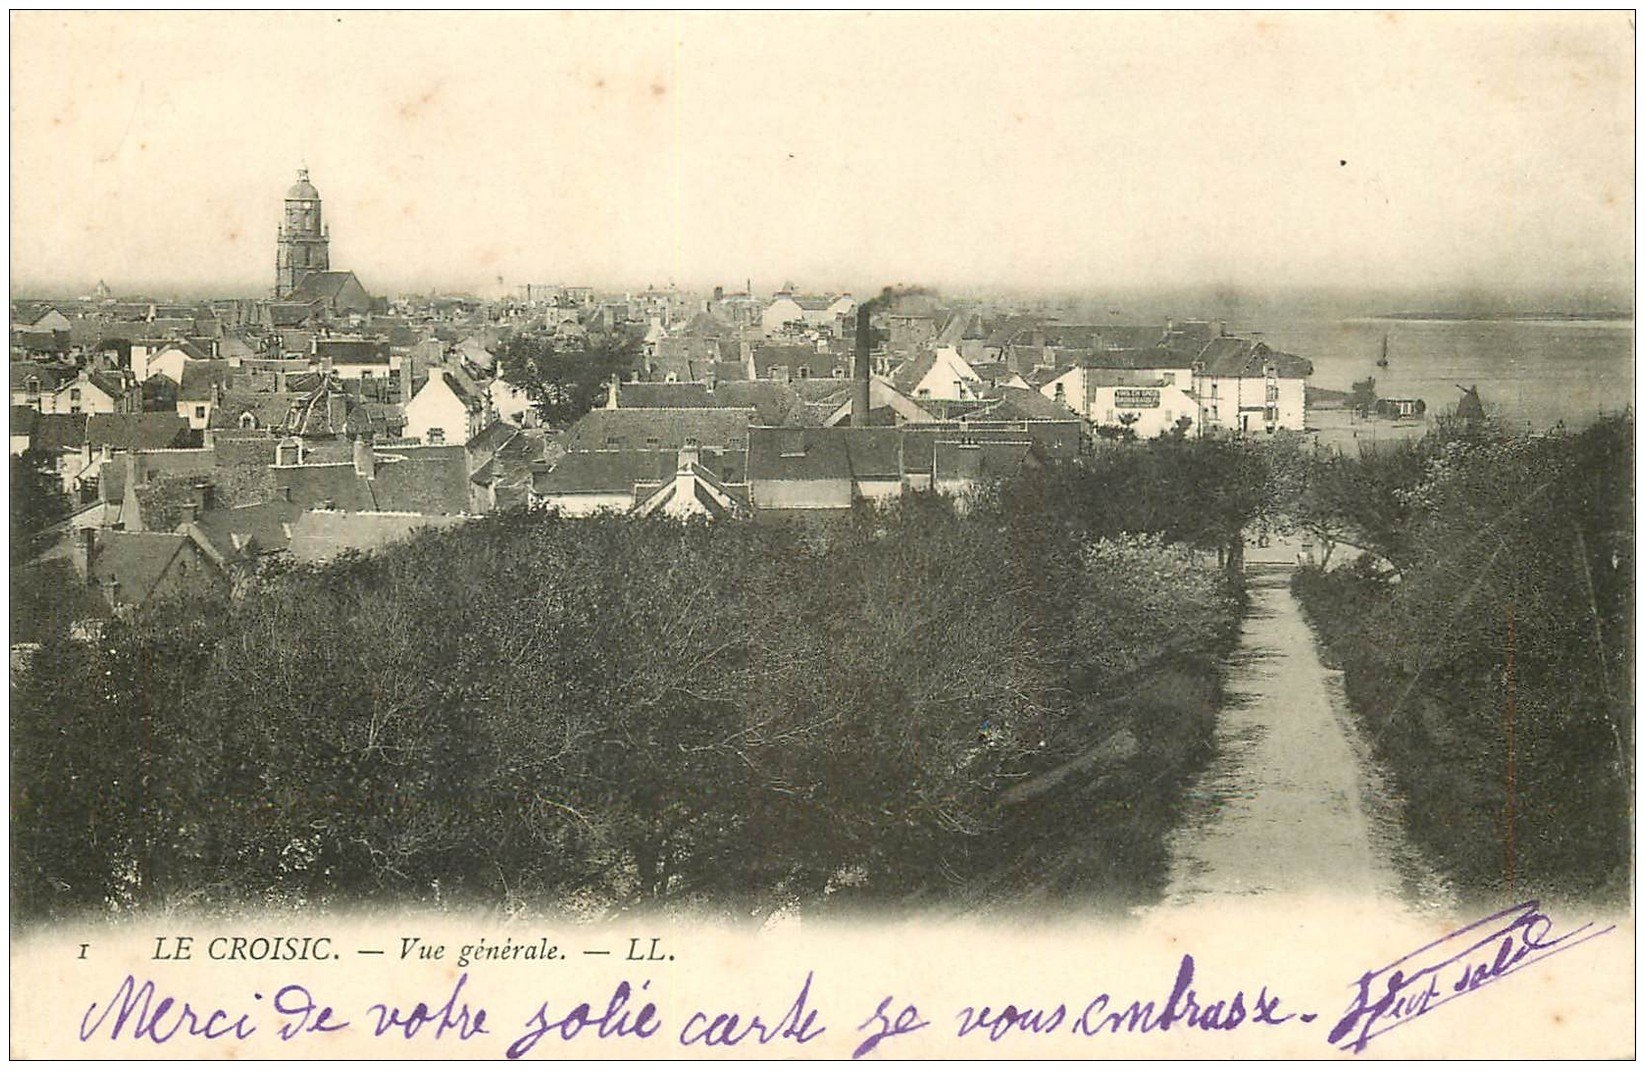 VINS EN GROS
1 LE CROISIC. — Vue générale. — LL.
Merci de votre jolie carte je vous embrasse.